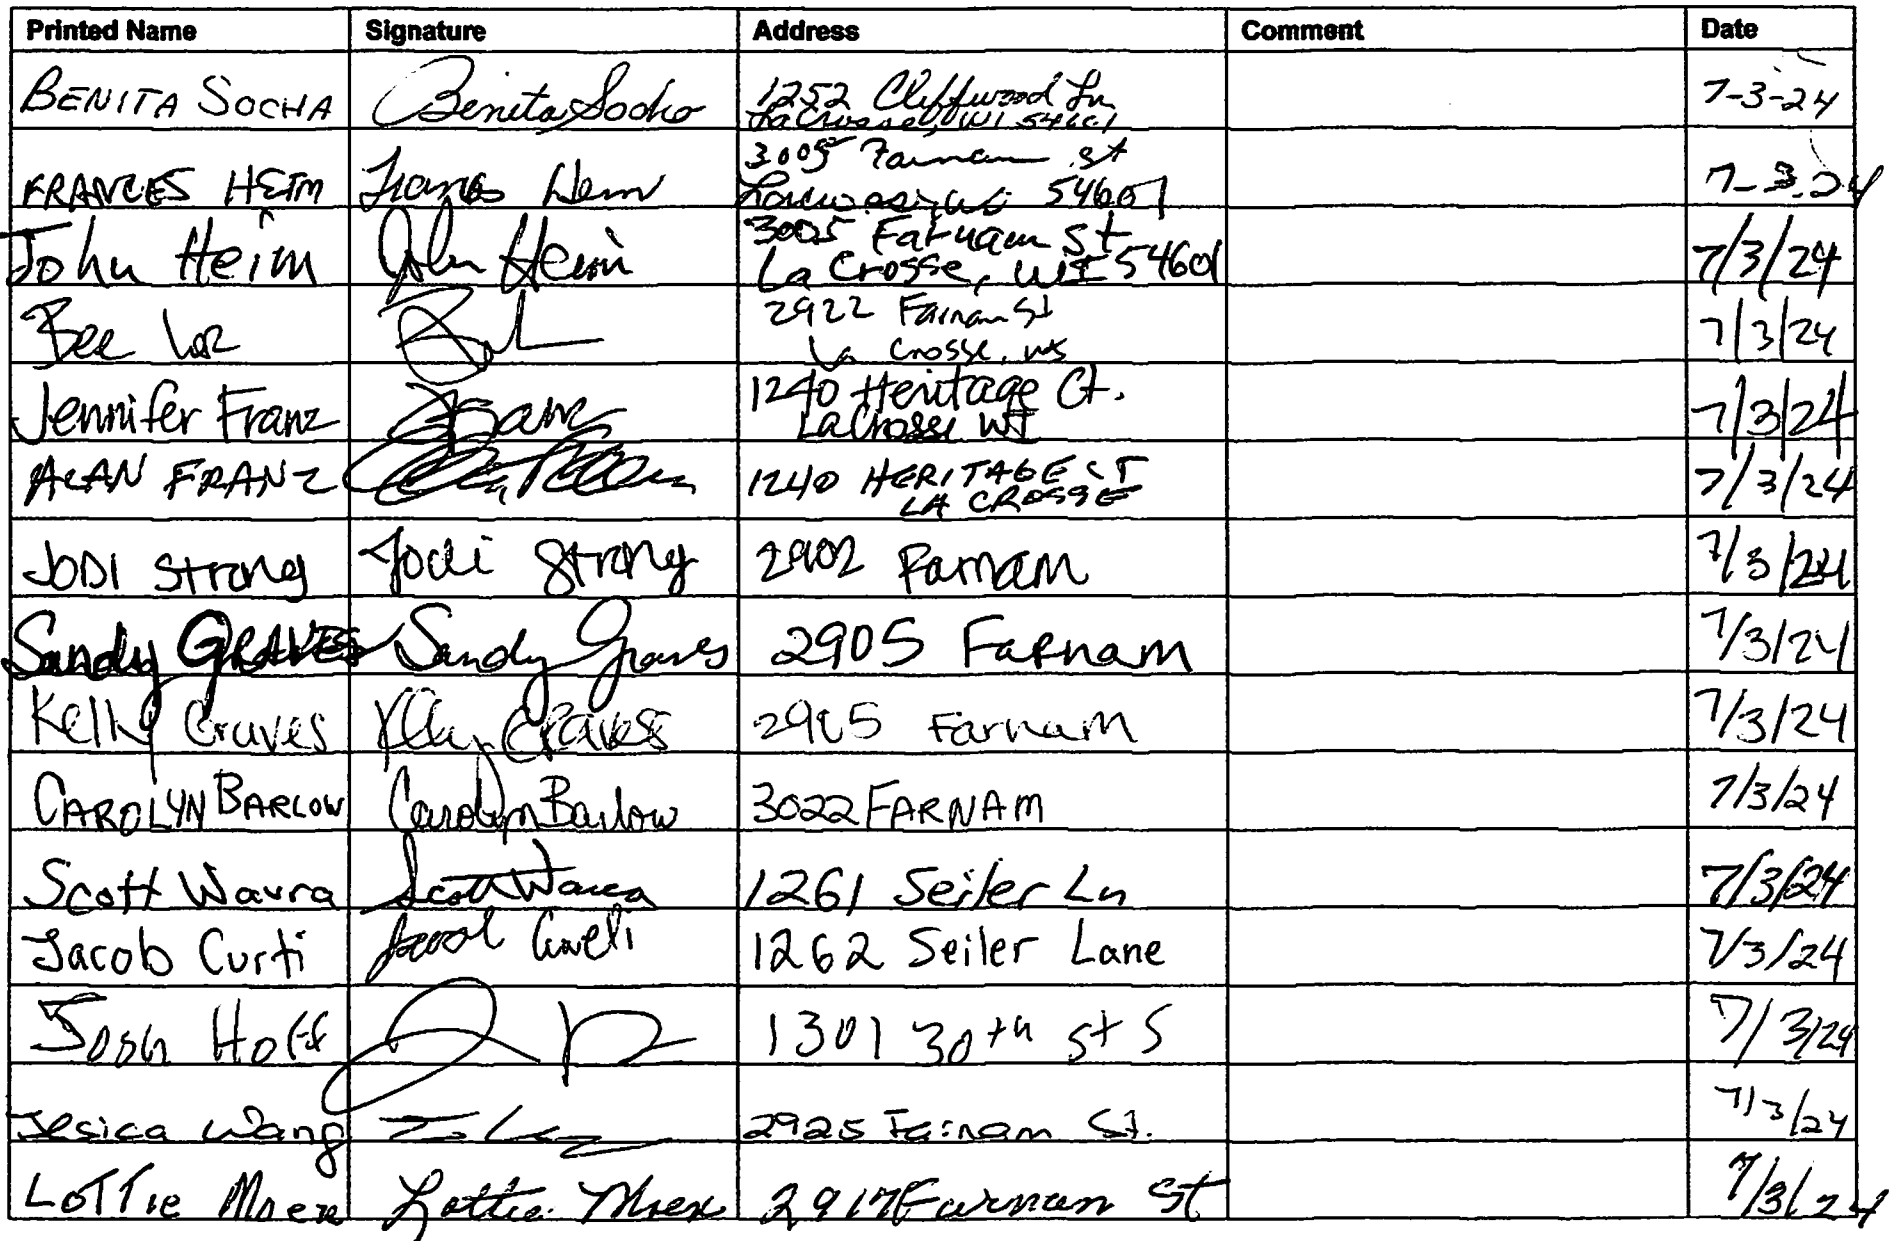 Printed Name Signature Address Comment Date
BENITA SOCHA Benita Socha 1252 Cliffwood Ln 7-3-24
La Crosse, WI 54601
FRANCES HEIM Frances Heim 3005 Farnam st 7-3-24
Lacrosse, Wi 54601
John Heim John Heim 3005 Farnam St 7/3/24
La Crosse, WI 54601
Bee Lor 2922 Farnam St 7/3/24
La Crosse, WI
Jennifer Franz 1240 Heritage Ct. 7/3/24
LaCrosse WI
ALAN FRANZ 1240 HERITAGE CT 7/3/24
LA CROSSE
JODI Strong Jodi Strong 2902 Farnam 7/3/24
Sandy GRAVES Sandy Graves 2905 Farnam 7/3/24
Kelly Graves Kelly Graves 2905 Farnam 7/3/24
CAROLYN BARLOW Carolyn Barlow 3022 FARNAM 7/3/24
Scott Wavra Scott Wavra 1261 Seiler Ln 7/3/24
Jacob Curti 1262 Seiler Lane 7/3/24
Josh Hoff 1301 30th St S 7/3/24
Jesica Wang 2925 Farnam St. 7/3/24
LOTTie Lottie 2917 Farnam St 7/3/24